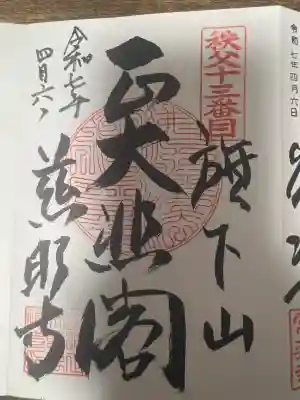 令和七年四月六日
秩父十三番目
旗下山
大悲閣
令和七年
四月六日
慈眼寺